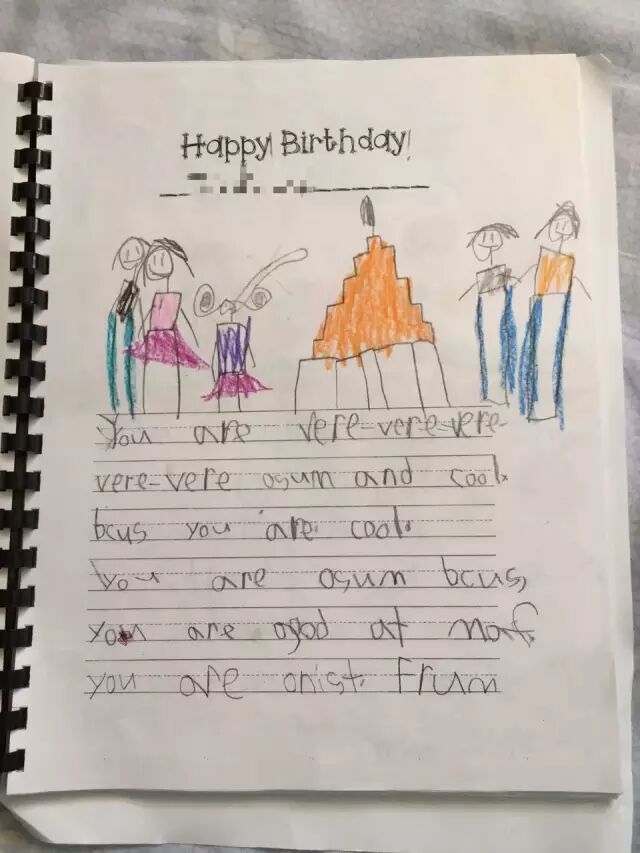 Happy Birthday!
You are vere-vere-vere-
vere-vere osum and cool.
bcus you are cool.
You are osum bcus,
you are agod at maf.
you are onist. Frum